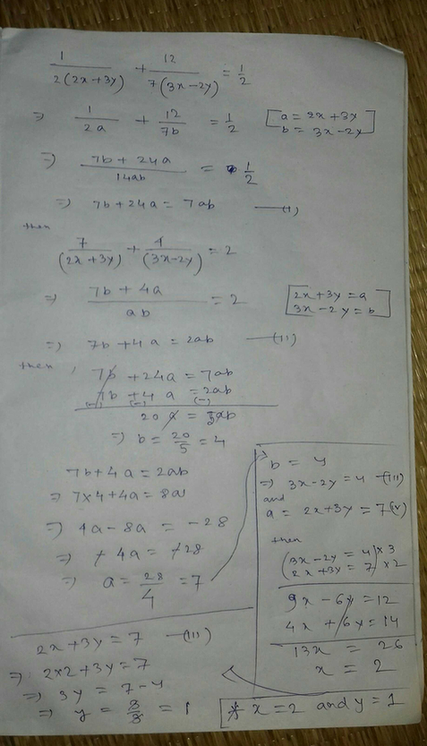 1/2(2x+3y) + 12/7(3x-2y) = 1/2
⇒ 1/2a + 12/7b = 1/2 [a = 2x+3y
b = 3x-2y]
⇒ 7b + 24a/14ab = 1/2
⇒ 7b + 24a = 7ab —(i)
then
7/(2x+3y) + 4/(3x-2y) = 2
⇒ 7b + 4a/ab = 2 [2x+3y = a
3x-2y = b]
⇒ 7b + 4a = 2ab —(ii)
then, 7b + 24a = 7ab
7b + 4a = 2ab
(-) (-) (-)
20a = 5ab
⇒ b = 20/5 = 4
7b + 4a = 2ab
⇒ 7x4 + 4a = 8a
⇒ 4a - 8a = -28
⇒ -4a = -28
⇒ a = 28/4 = 7
b = 4
⇒ 3x-2y = 4 —(iii)
and
a = 2x+3y = 7
then
(3x-2y = 4) x 3
(2x+3y = 7) x 2
9x - 6y = 12
4x + 6y = 14
13x = 26
x = 2
2x+3y = 7 —(iii)
⇒ 2x2+3y = 7
⇒ 3y = 7-4
⇒ y = 3/3 = 1
[* x = 2 and y = 1